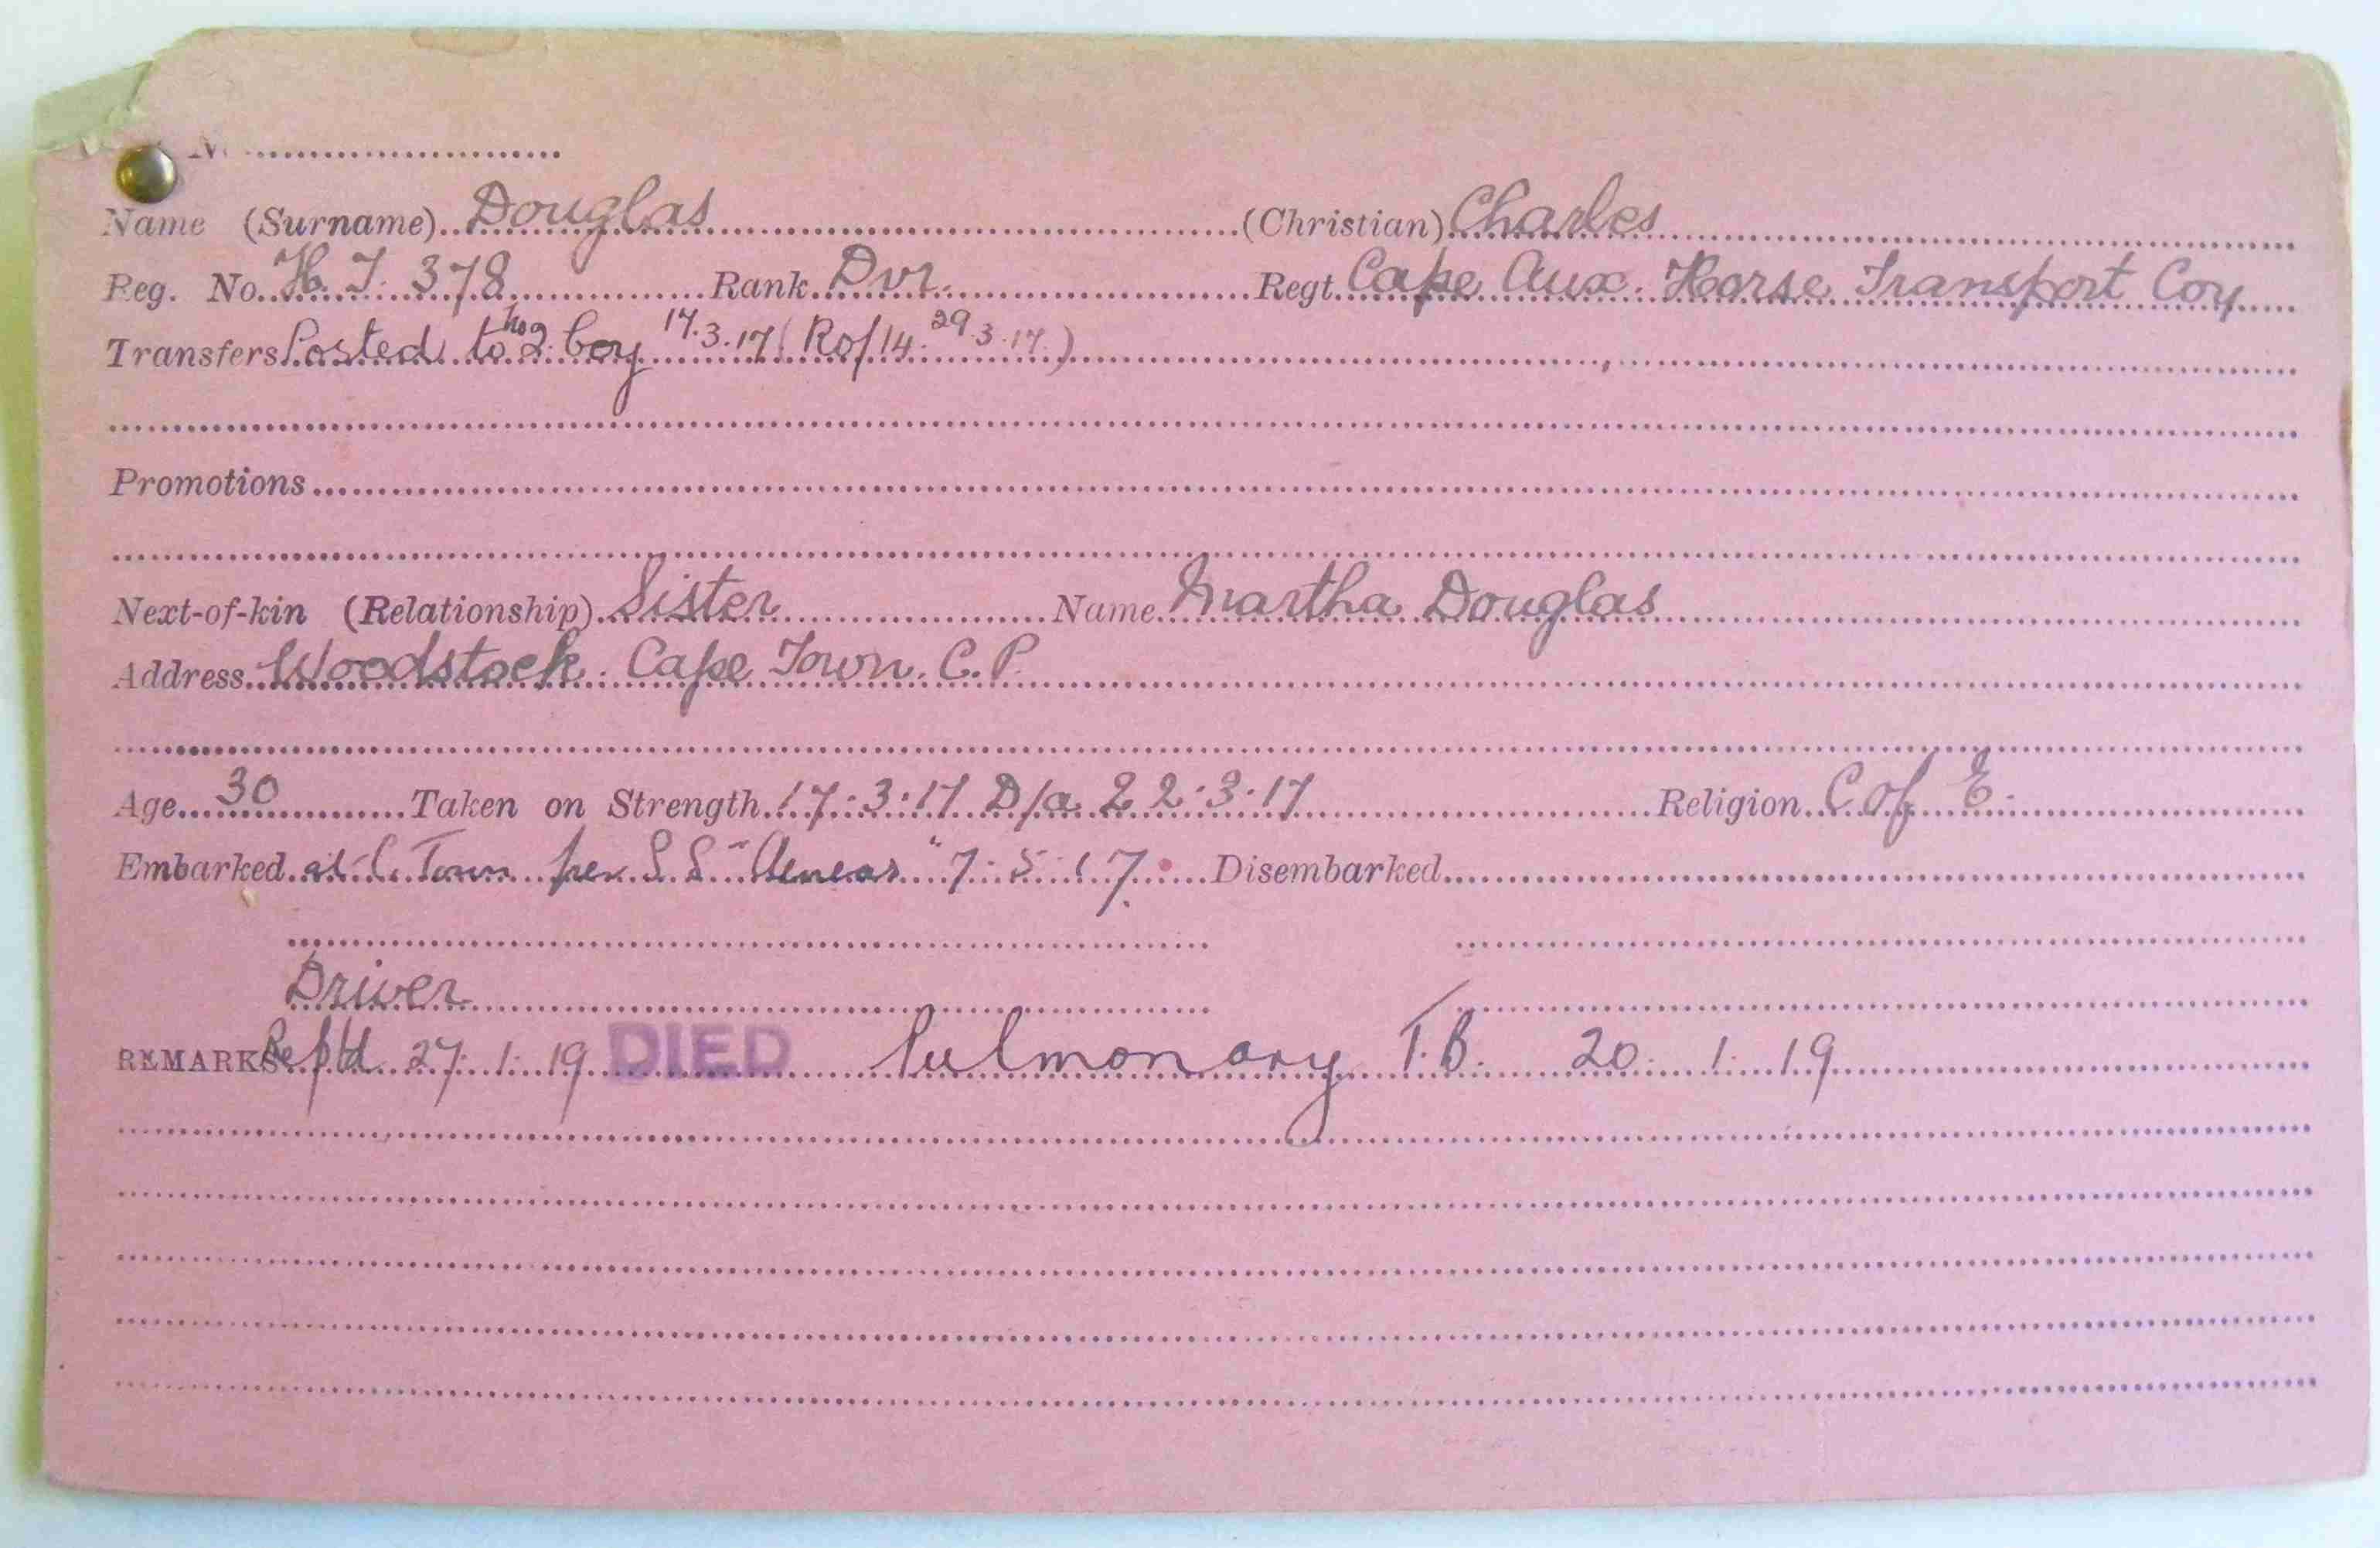 No.
Name (Surname) Douglas (Christian) Charles
Reg. No. H.T. 378 Rank Dvr. Regt. Cape Aux. Horse Transport Coy
Transfers Posted to No 2 Coy 17.3.17 (Ro/14. 29.3.17.)
Promotions
Next-of-kin (Relationship) Sister Name Martha Douglas
Address Woodstock. Cape Town. C.P.
Age 30 Taken on Strength 17:3:17 D/a 22.3.17 Religion C. of E.
Embarked at C. Town per S.S. "Aeneas" 7.5.17. Disembarked
Driver
REMARKS Reptd 27.1.19 DIED Pulmonary T.B. 20.1.19